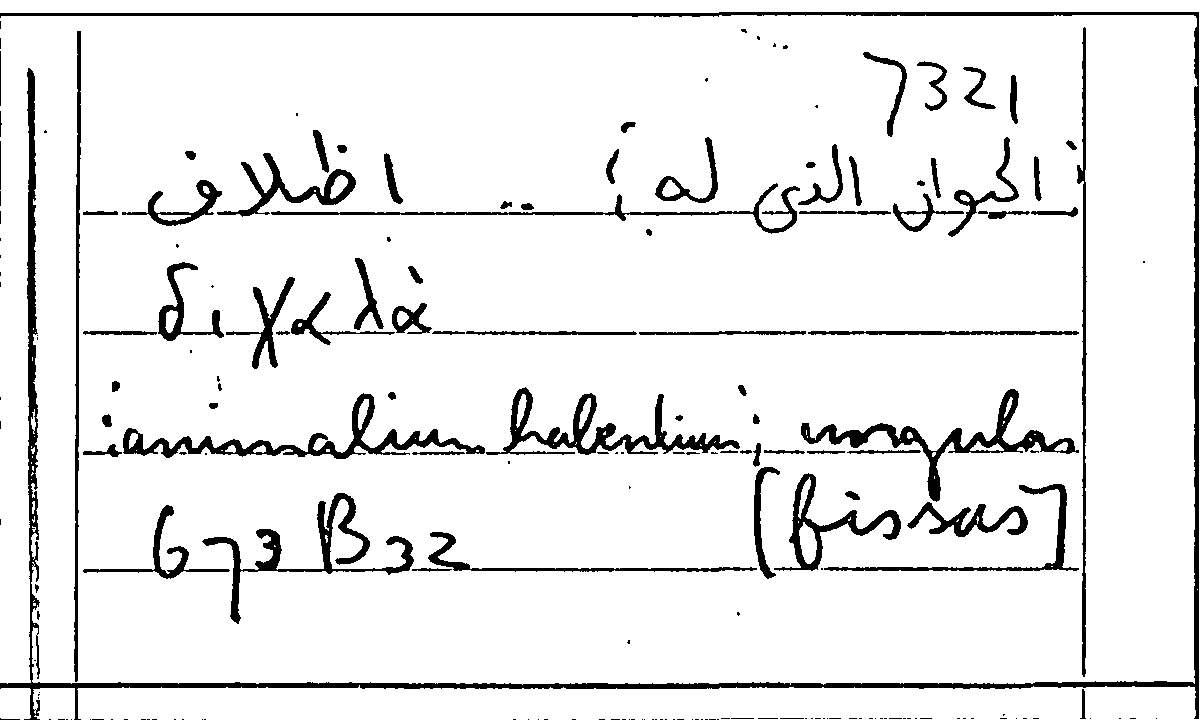 7321
⁝ الحيوان الذى له ⁝ .. اظلاف
διχαλὰ
⁝animalium habentium⁝ ungulas
673 B32 [fissas]